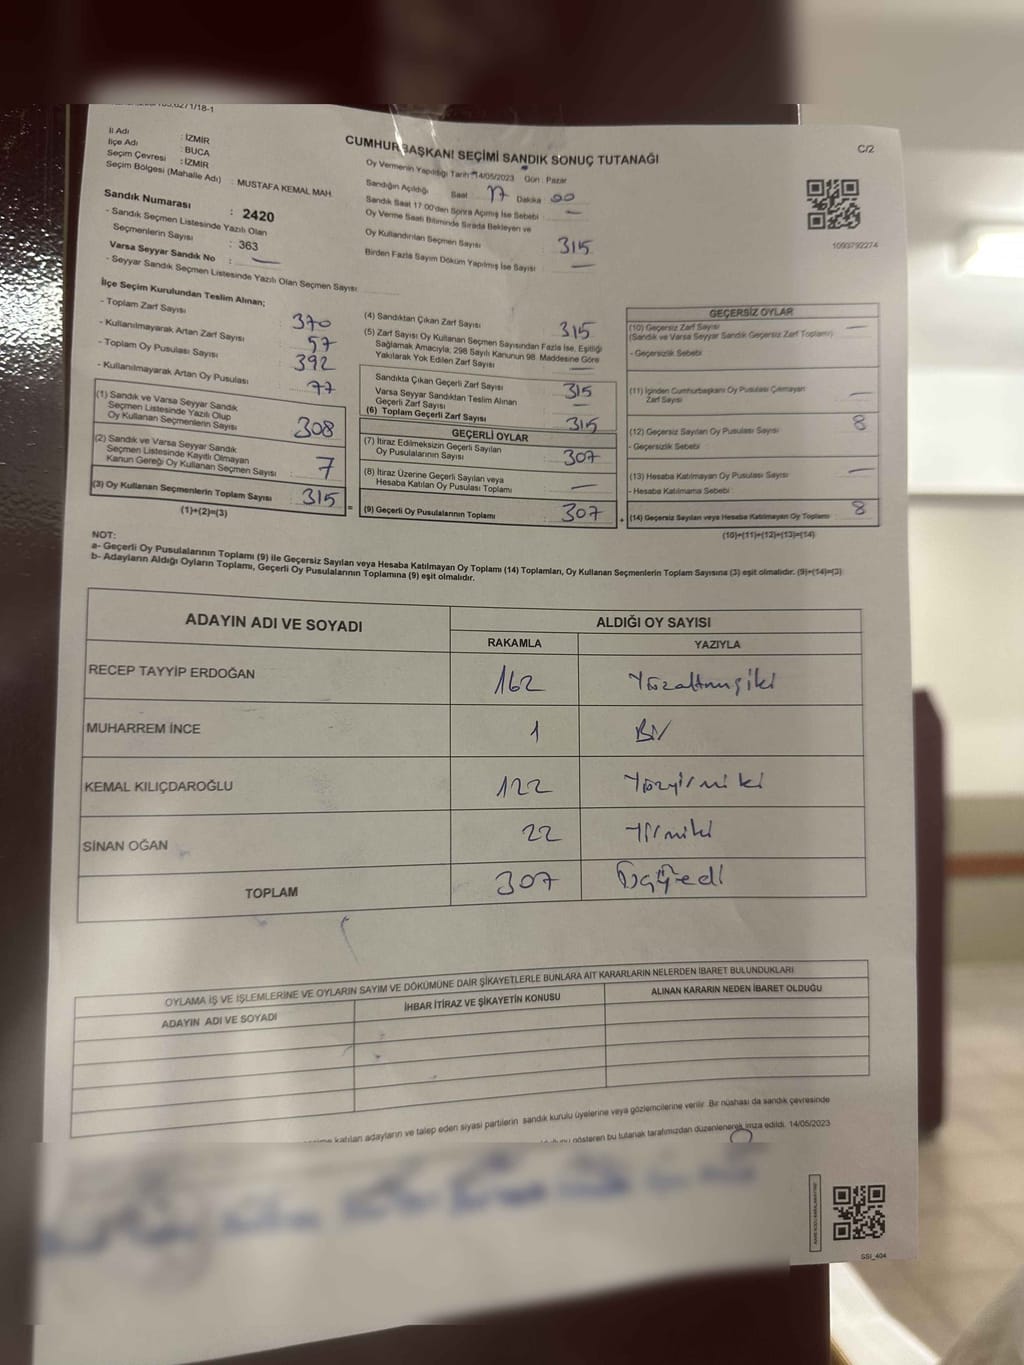 C/2
İl Adı : İZMİR
İlçe Adı : BUCA
Seçim Çevresi : İZMİR
Seçim Bölgesi (Mahalle Adı) : MUSTAFA KEMAL MAH.
Sandık Numarası : 2420
- Sandık Seçmen Listesinde Yazılı Olan
Seçmenlerin Sayısı : 363
Varsa Seyyar Sandık No : —
- Seyyar Sandık Seçmen Listesinde Yazılı Olan Seçmen Sayısı
CUMHURBAŞKANI SEÇİMİ SANDIK SONUÇ TUTANAĞI
Oy Vermenin Yapıldığı Tarih 14/05/2023 Gün : Pazar
Sandığın Açıldığı Saat 17 Dakika 00
Sandık Saat 17:00'den Sonra Açılmış İse Sebebi : —
Oy Verme Saati Bitiminde Sırada Bekleyen ve
Oy Kullandırılan Seçmen Sayısı : 315
Birden Fazla Sayım Döküm Yapılmış İse Sayısı : —
1093792274
İlçe Seçim Kurulundan Teslim Alınan;
- Toplam Zarf Sayısı : 370
- Kullanılmayarak Artan Zarf Sayısı : 57
- Toplam Oy Pusulası Sayısı : 392
- Kullanılmayarak Artan Oy Pusulası : 77
(1) Sandık ve Varsa Seyyar Sandık
Seçmen Listesinde Yazılı Olup
Oy Kullanan Seçmenlerin Sayısı : 308
(2) Sandık ve Varsa Seyyar Sandık
Seçmen Listesinde Kayıtlı Olmayan
Kanun Gereği Oy Kullanan Seçmen Sayısı : 7
(3) Oy Kullanan Seçmenlerin Toplam Sayısı : 315
(1)+(2)=(3)
=
(4) Sandıktan Çıkan Zarf Sayısı : 315
(5) Zarf Sayısı Oy Kullanan Seçmen Sayısından Fazla İse, Eşitliği
Sağlamak Amacıyla, 298 Sayılı Kanunun 98. Maddesine Göre
Yakılarak Yok Edilen Zarf Sayısı : —
Sandıkta Çıkan Geçerli Zarf Sayısı : 315
Varsa Seyyar Sandıktan Teslim Alınan
Geçerli Zarf Sayısı : —
(6) Toplam Geçerli Zarf Sayısı : 315
GEÇERLİ OYLAR
(7) İtiraz Edilmeksizin Geçerli Sayılan
Oy Pusulalarının Sayısı : 307
(8) İtiraz Üzerine Geçerli Sayılan veya
Hesaba Katılan Oy Pusulası Toplamı : —
(9) Geçerli Oy Pusulalarının Toplamı : 307
+
GEÇERSİZ OYLAR
(10) Geçersiz Zarf Sayısı —
(Sandık ve Varsa Seyyar Sandık Geçersiz Zarf Toplamı)
- Geçersizlik Sebebi
(11) İçinden Cumhurbaşkanı Oy Pusulası Çıkmayan
Zarf Sayısı —
(12) Geçersiz Sayılan Oy Pusulası Sayısı 8
- Geçersizlik Sebebi
(13) Hesaba Katılmayan Oy Pusulası Sayısı —
- Hesaba Katılmama Sebebi
(14) Geçersiz Sayılan veya Hesaba Katılmayan Oy Toplamı 8
(10)+(11)+(12)+(13)=(14)
NOT:
a- Geçerli Oy Pusulalarının Toplamı (9) ile Geçersiz Sayılan veya Hesaba Katılmayan Oy Toplamı (14) Toplamları, Oy Kullanan Seçmenlerin Toplam Sayısına (3) eşit olmalıdır. (9)+(14)=(3)
b- Adayların Aldığı Oyların Toplamı, Geçerli Oy Pusulalarının Toplamına (9) eşit olmalıdır.
ADAYIN ADI VE SOYADI
ALDIĞI OY SAYISI
RAKAMLA YAZIYLA
RECEP TAYYİP ERDOĞAN 162 Yüzaltmışiki
MUHARREM İNCE 1 Bir
KEMAL KILIÇDAROĞLU 122 Yüzyirmiiki
SİNAN OĞAN 22 Yirmiiki
TOPLAM 307 Üçyüzyedi
OYLAMA İŞ VE İŞLEMLERİNE VE OYLARIN SAYIM VE DÖKÜMÜNE DAİR ŞİKAYETLERLE BUNLARA AİT KARARLARIN NELERDEN İBARET BULUNDUKLARI
ADAYIN ADI VE SOYADI İHBAR İTİRAZ VE ŞİKAYETİN KONUSU ALINAN KARARIN NEDEN İBARET OLDUĞU
katılan adayların ve talep eden siyasi partilerin sandık kurulu üyelerine veya gözlemcilerine verilir. Bir nüshası da sandık çevresinde
gösteren bu tutanak tarafımızdan düzenlenerek imza edildi. 14/05/2023
SSI_404